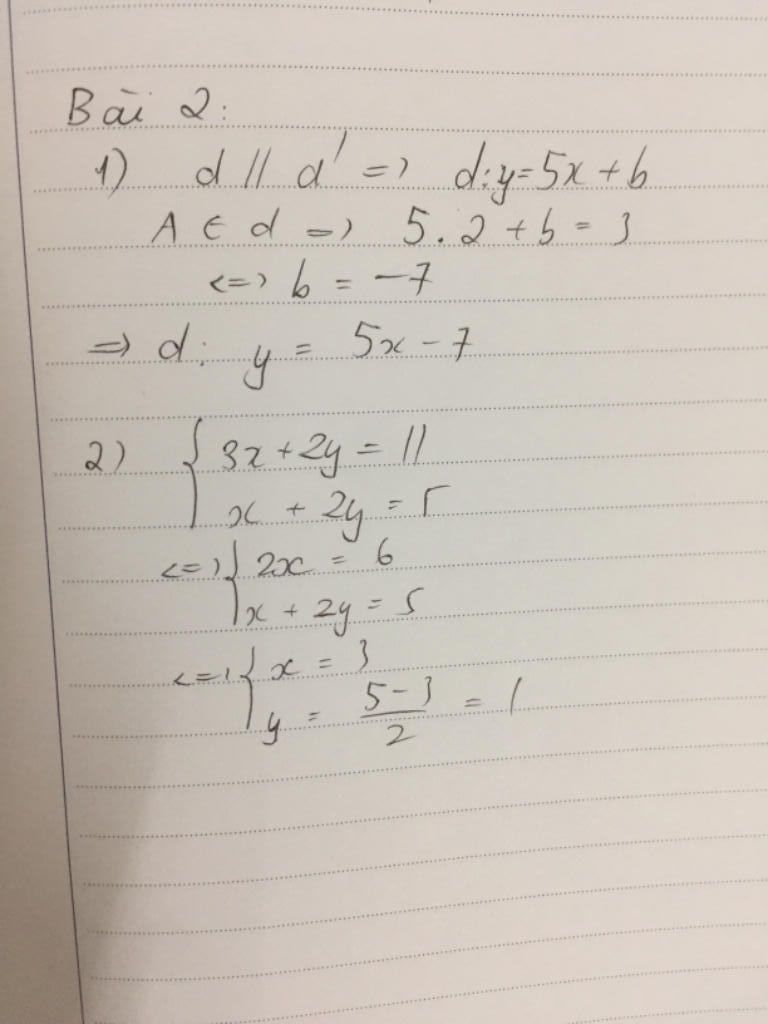 Bài 2:
1) d // d' => d: y = 5x + b
A ∈ d => 5.2 + b = 3
<=> b = -7
=> d: y = 5x - 7
2) { 3x + 2y = 11
x + 2y = 5
<=> { 2x = 6
x + 2y = 5
<=> { x = 3
y = (5-3)/2 = 1